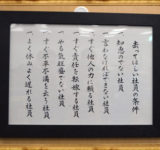 去ってほしい社員の条件
一 知恵のでない社員
一 言わなければできない社員
一 すぐ他人の力に頼る社員
一 すぐ責任を転嫁する社員
一 やる気旺盛でない社員
一 すぐ不平不満を云う社員
一 よく休みよく遅れる社員